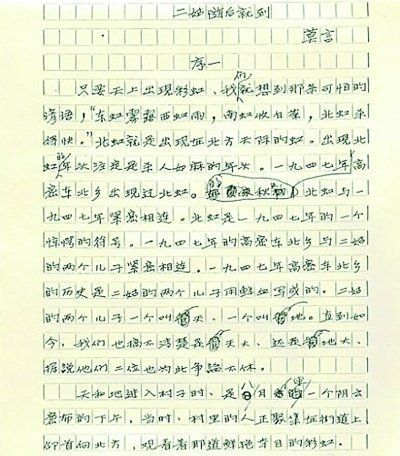 二姑随后就到
莫言
序一
只要天上出现彩虹,我们就想到那条可怕的
谚语:“东虹雾露西虹雨,南虹收白菜,北虹杀
得快。”北虹就是出现在北方天际的虹。出现北
虹的年头注定是杀人如麻的年头。一九四七年高
密东北乡出现过北虹。北虹与一
九四七年紧密相连。北虹是一九四七年的一个
惊愕的符号。一九四七年的高密东北乡与二姑
的两个儿子紧密相连。一九四七年高密东北乡
的历史是二姑的两个儿子用鲜血写成的。二姑
的两个儿子一个叫天,一个叫地。直到如
今,我们也搞不清楚是天大,还是地大,
据说他们二位也为此争论不休。
天和地进入村子时,是八月一个阴云
密布的下午,当时,村里的人正聚集在街道上
仰首向北方,观看着那道鲜艳夺目的彩虹。